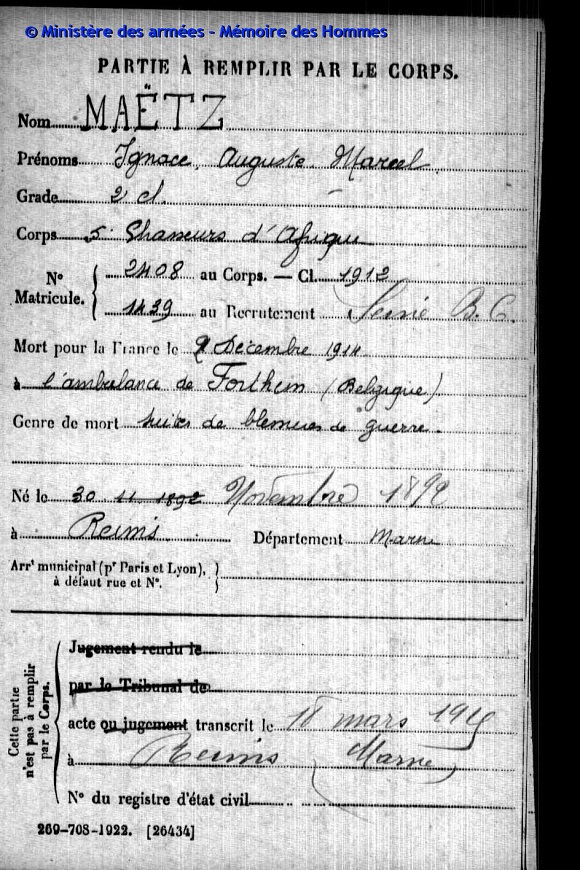 © Ministère des armées - Mémoire des Hommes
PARTIE À REMPLIR PAR LE CORPS.
Nom MAËTZ
Prénoms Ignace Auguste Marcel
Grade 2e cl.
Corps 5e Chasseurs d'Afrique
N° Matricule. { 2408 au Corps. — Cl. 1912
1439 au Recrutement Seine B. C.
Mort pour la France le 9 Décembre 1914
à l'ambulance de Forthem (Belgique)
Genre de mort suites de blessures de guerre
Né le 30 11 1892 Novembre 1892
à Reims Département Marne
Arrt municipal (pr Paris et Lyon),
à défaut rue et N°.
Cette partie
n'est pas à remplir
par le Corps.
Jugement rendu le
par le Tribunal de
acte ou jugement transcrit le 18 mars 1915
à Reims (Marne)
N° du registre d'état civil
269-708-1922. [26434]